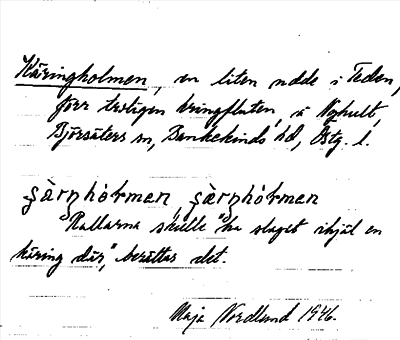 Käringholmen, en liten udde i Teden,
förr troligen kringfluten, å Nyhult,
Björsäters sn, Bankekinds hd, Östg. l.
şàrŋhórmen, şàrŋhórmen
Rallarna skulle "ha slaget ihjäl en
käring där," berättas det.
Maja Nordlund 1946.